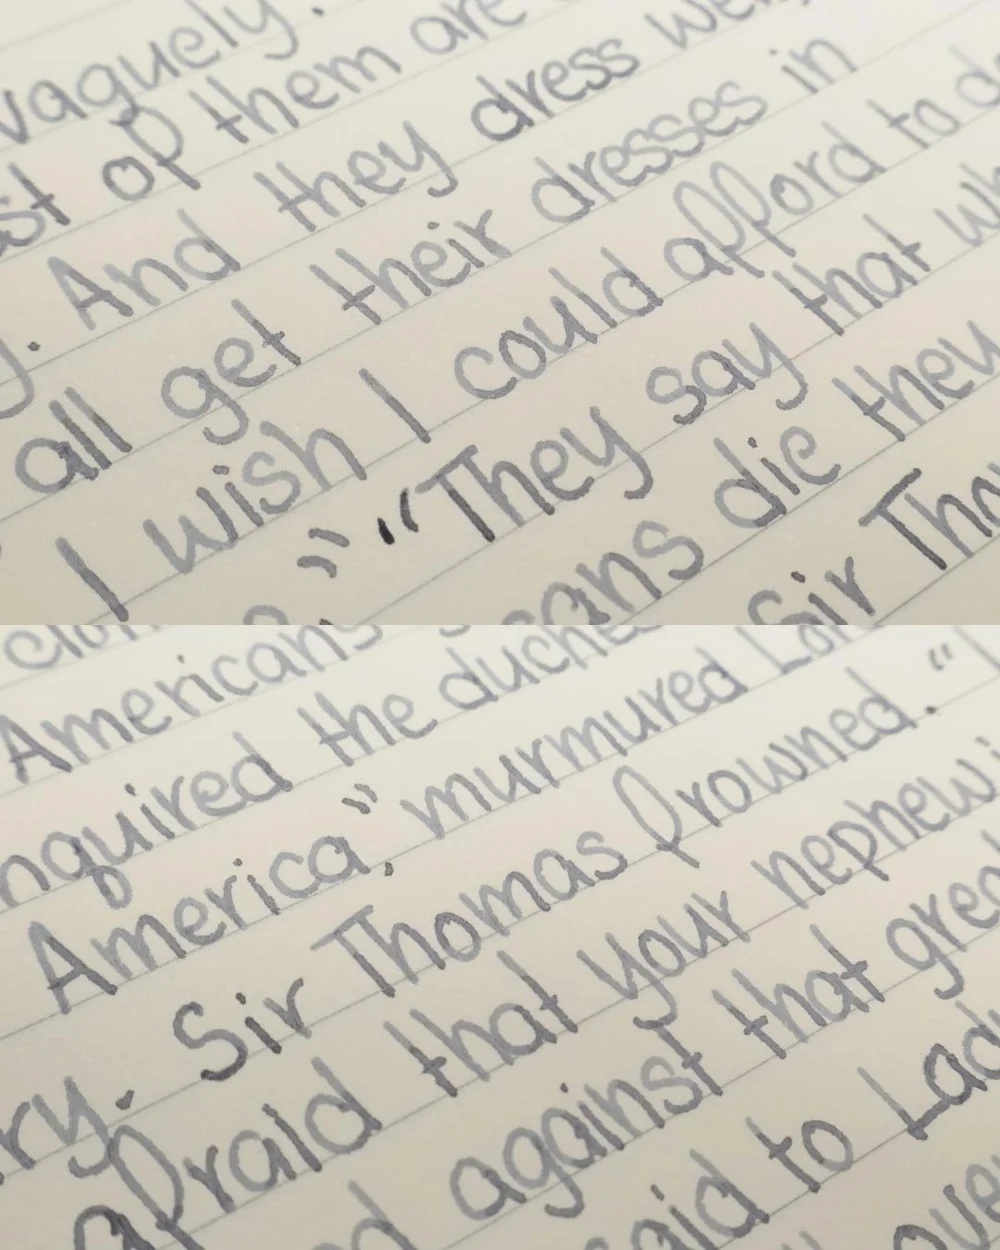 vaguely.
st of them are
y. And they dress well,
all get their dresses in
I wish I could afford to do
” “They say that wh
cans die they
Sir Tho
Americans
nquired the duche
America,” murmured Lor
ry. Sir Thomas frowned. “I
afraid that your nephew i
d against that grea
said to Lad
over